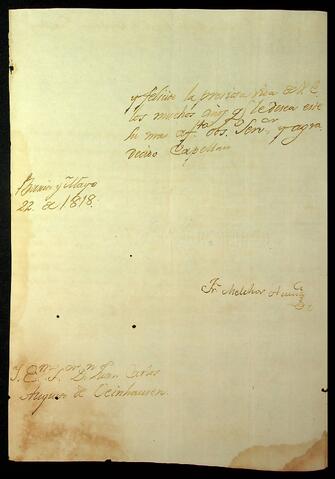 y felicite la preciosa vida de V. E.
los muchos años q.e le desea este
su mas af.to obs. Ser.or y agra
decido Capellan
y Mayo
22. de 1818.
Fr. Melchor
Juan Carlos
de Oeinhausen.